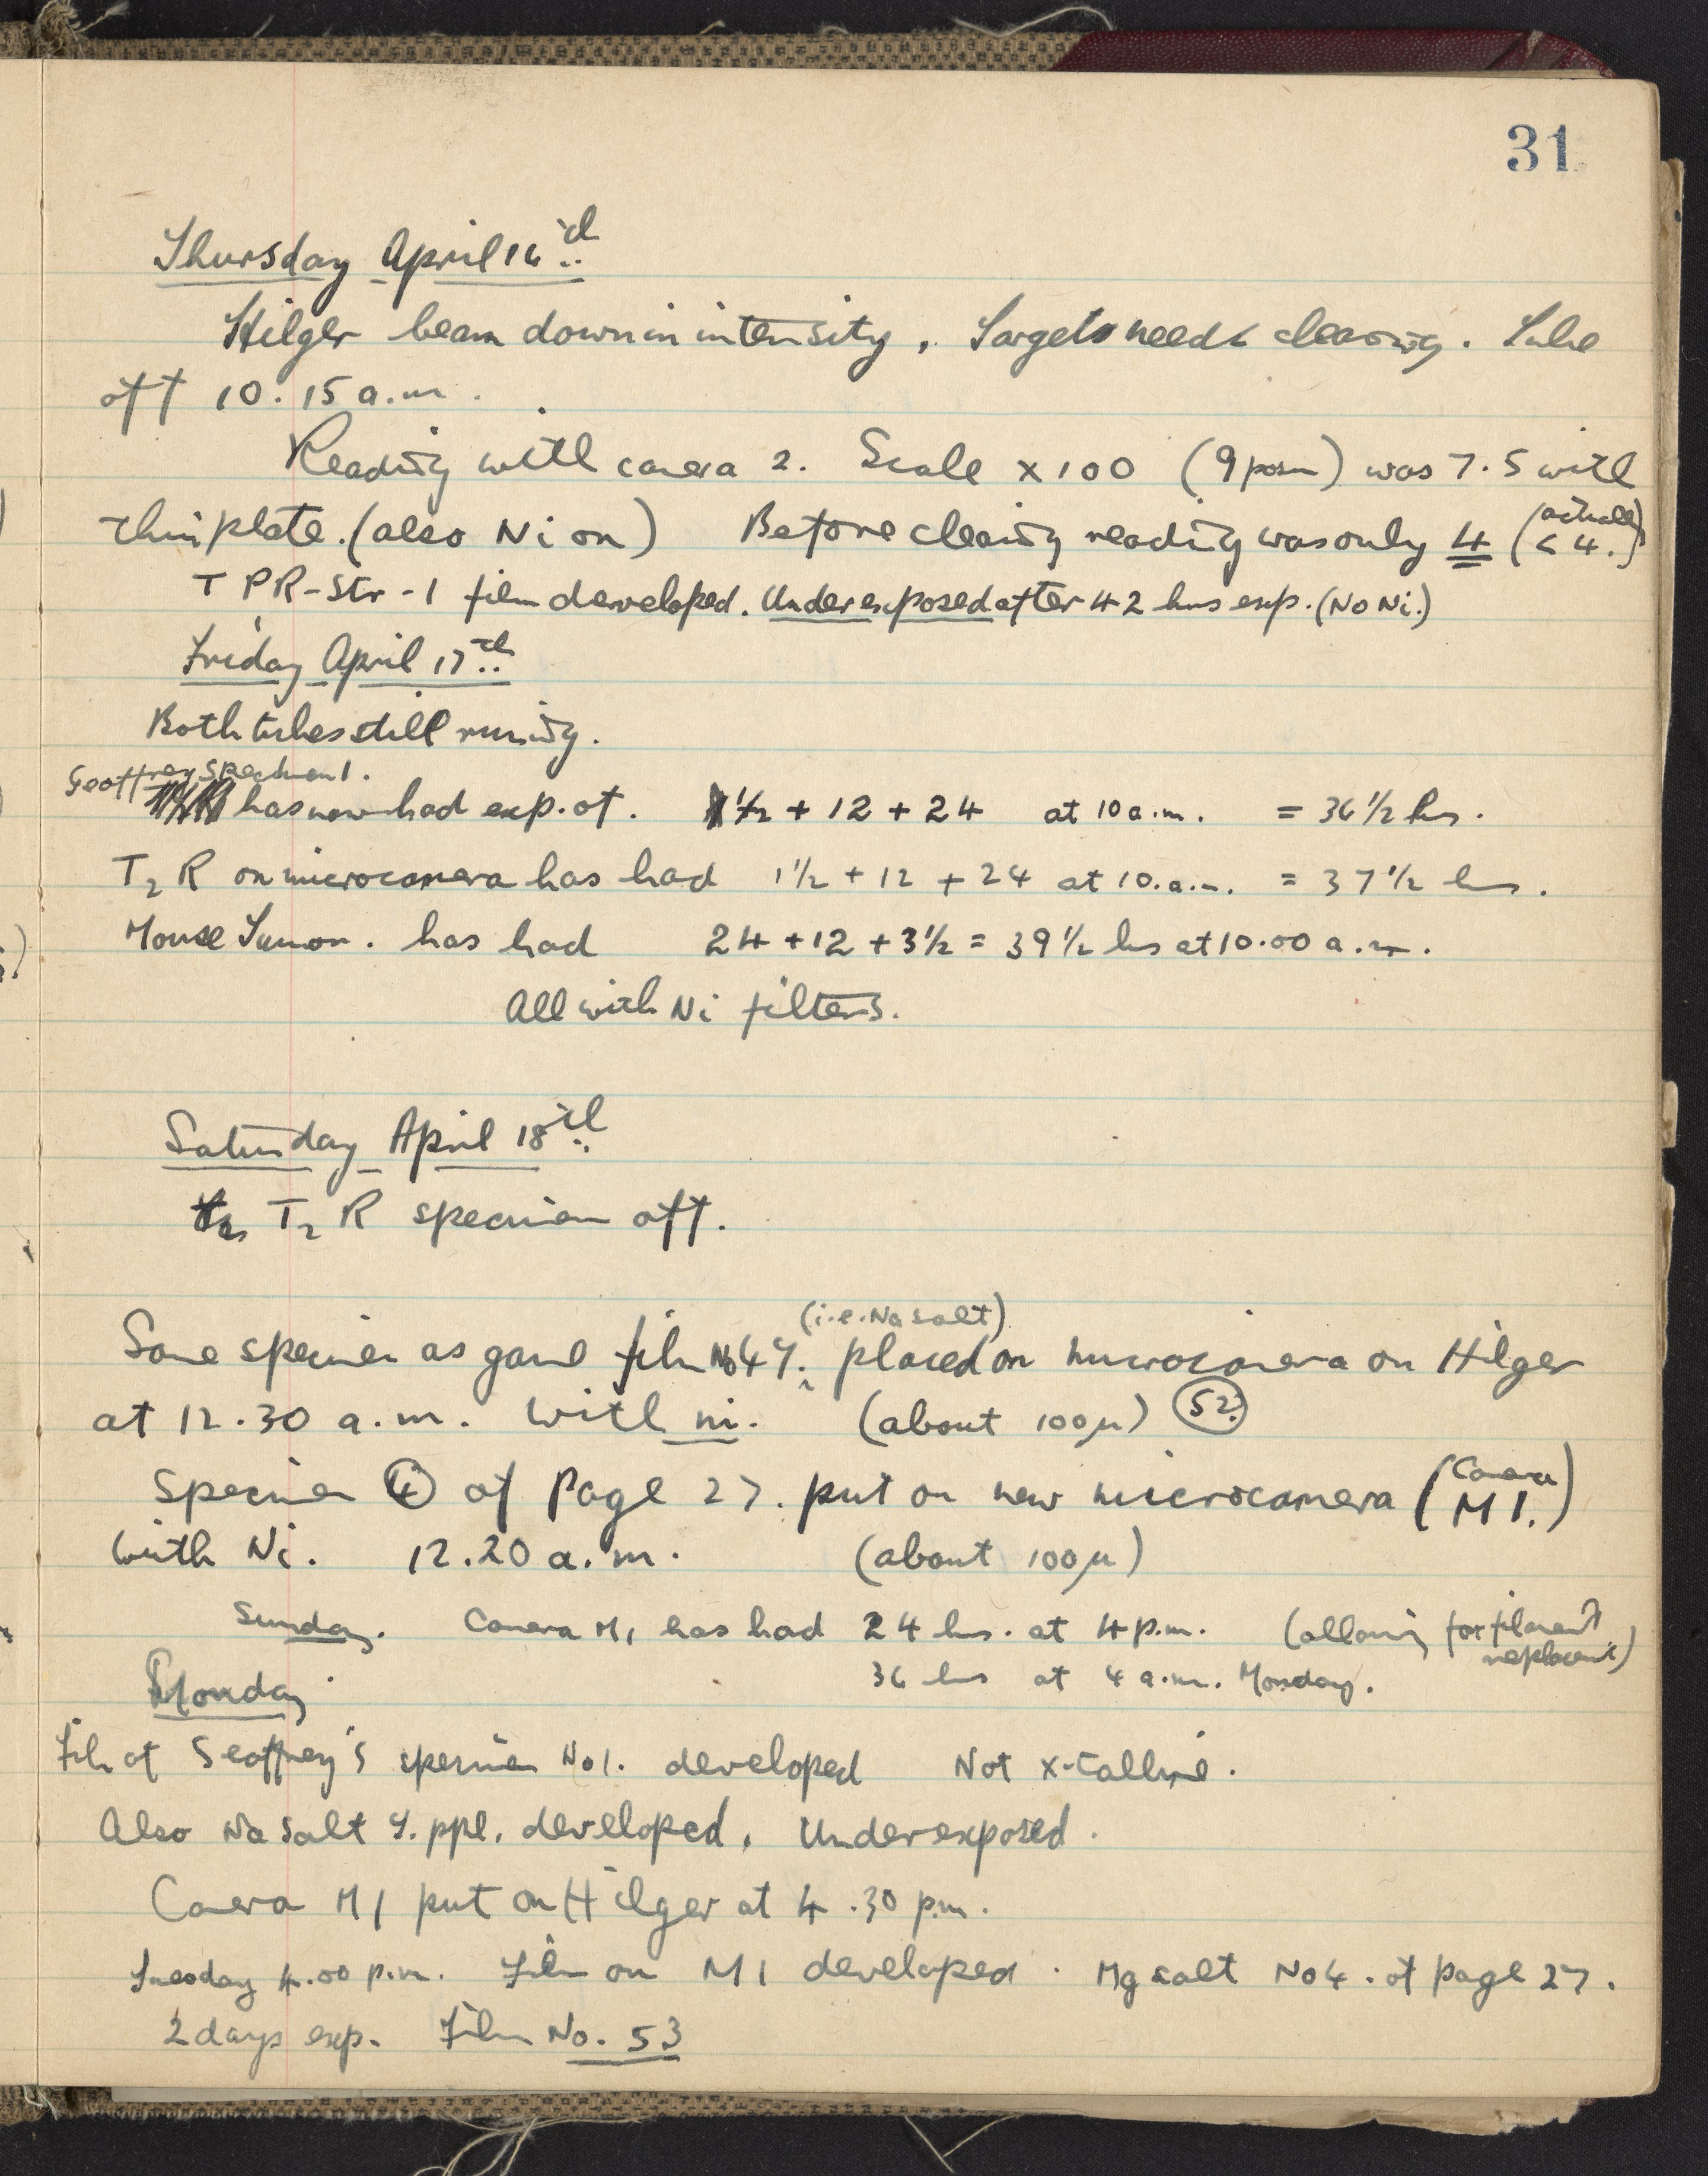 31
Thursday April 16th
Hilger beam down in intensity, Target needs cleaning. Tube
off 10.15 a.m.
Reading with camera 2. Scale x 100 (9 posn) was 7.5 with
thin plate. (also Ni on) Before cleaning reading was only 4 (actually < 4.)
TPR-Str-1 film developed. Underexposed after 42 hrs exp. (No Ni.)
Friday April 17th
Both tubes still running.
Geoffrey Specimen 1.
has now had exp. of. 1/2 + 12 + 24 at 10 a.m. = 36 1/2 hrs.
T2 R on microcamera has had 1 1/2 + 12 + 24 at 10.a.m. = 37 1/2 hrs.
Mouse Tumor. has had 24 + 12 + 3 1/2 = 39 1/2 hrs at 10.00 a.m.
All with Ni filters.
Saturday April 18th
T2 R specimen off.
(i.e. Na salt)
Same specimen as gave film No 47. placed on microcamera on Hilger
at 12.30 a.m. with Ni. (about 100μ) 52.
Specimen 4 of Page 27. put on new microcamera (Camera M1.)
with Ni. 12.20 a.m. (about 100μ)
Sunday. Camera M1 has had 24 hrs. at 4 p.m. (allowing for filament replacement)
36 hrs at 4 a.m. Monday.
Monday
Film of Geoffrey's specimen No 1. developed Not x-talline.
Also Na salt Y. ppt. developed, Underexposed.
Camera M1 put on Hilger at 4.30 p.m.
Tuesday 4.00 p.m. Film on M1 developed. Mg salt No 4. of page 27.
2 days exp. Film No. 53